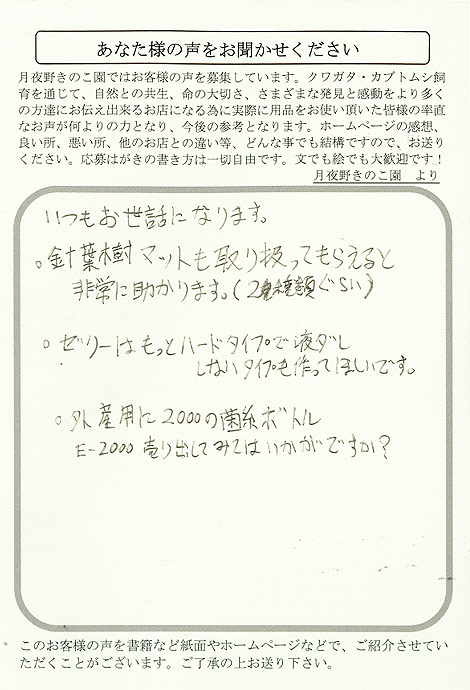 あなた様の声をお聞かせください
月夜野きのこ園ではお客様の声を募集しています。クワガタ・カブトムシ飼
育を通じて、自然との共生、命の大切さ、さまざまな発見と感動をより多く
の方達にお伝え出来るお店になる為に実際に用品をお使い頂いた皆様の率直
なお声が何よりの力となり、今後の参考となります。ホームページの感想、
良い所、悪い所、他のお店との違い等、どんな事でも結構ですので、お送り
ください。応募はがきの書き方は一切自由です。文でも絵でも大歓迎です！
月夜野きのこ園　より
いつもお世話になります。
。針葉樹マットも取り扱ってもらえると
非常に助かります。(2種類ぐらい)
。ゼリーはもっとハードタイプで液ダレ
しないタイプも作ってほしいです。
。外産用に2000の菌糸ボトル
E-2000 売り出してみてはいかがですか?
このお客様の声を書籍など紙面やホームページなどで、ご紹介させてい
ただくことがございます。ご了承の上お送り下さい。